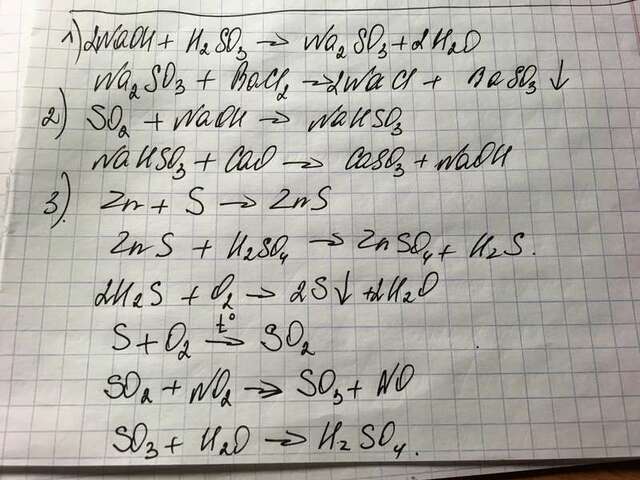 1) 2NaOH + H₂SO₃ → Na₂SO₃ + 2H₂O
Na₂SO₃ + BaCl₂ → 2NaCl + BaSO₃ ↓
2) SO₂ + NaOH → NaHSO₃
NaHSO₃ + CaO → CaSO₃ + NaOH
3). Zn + S → ZnS
ZnS + H₂SO₄ → ZnSO₄ + H₂S.
2H₂S + O₂ → 2S↓ + 2H₂O
S + O₂ t° → SO₂
SO₂ + NO₂ → SO₃ + NO
SO₃ + H₂O → H₂SO₄.